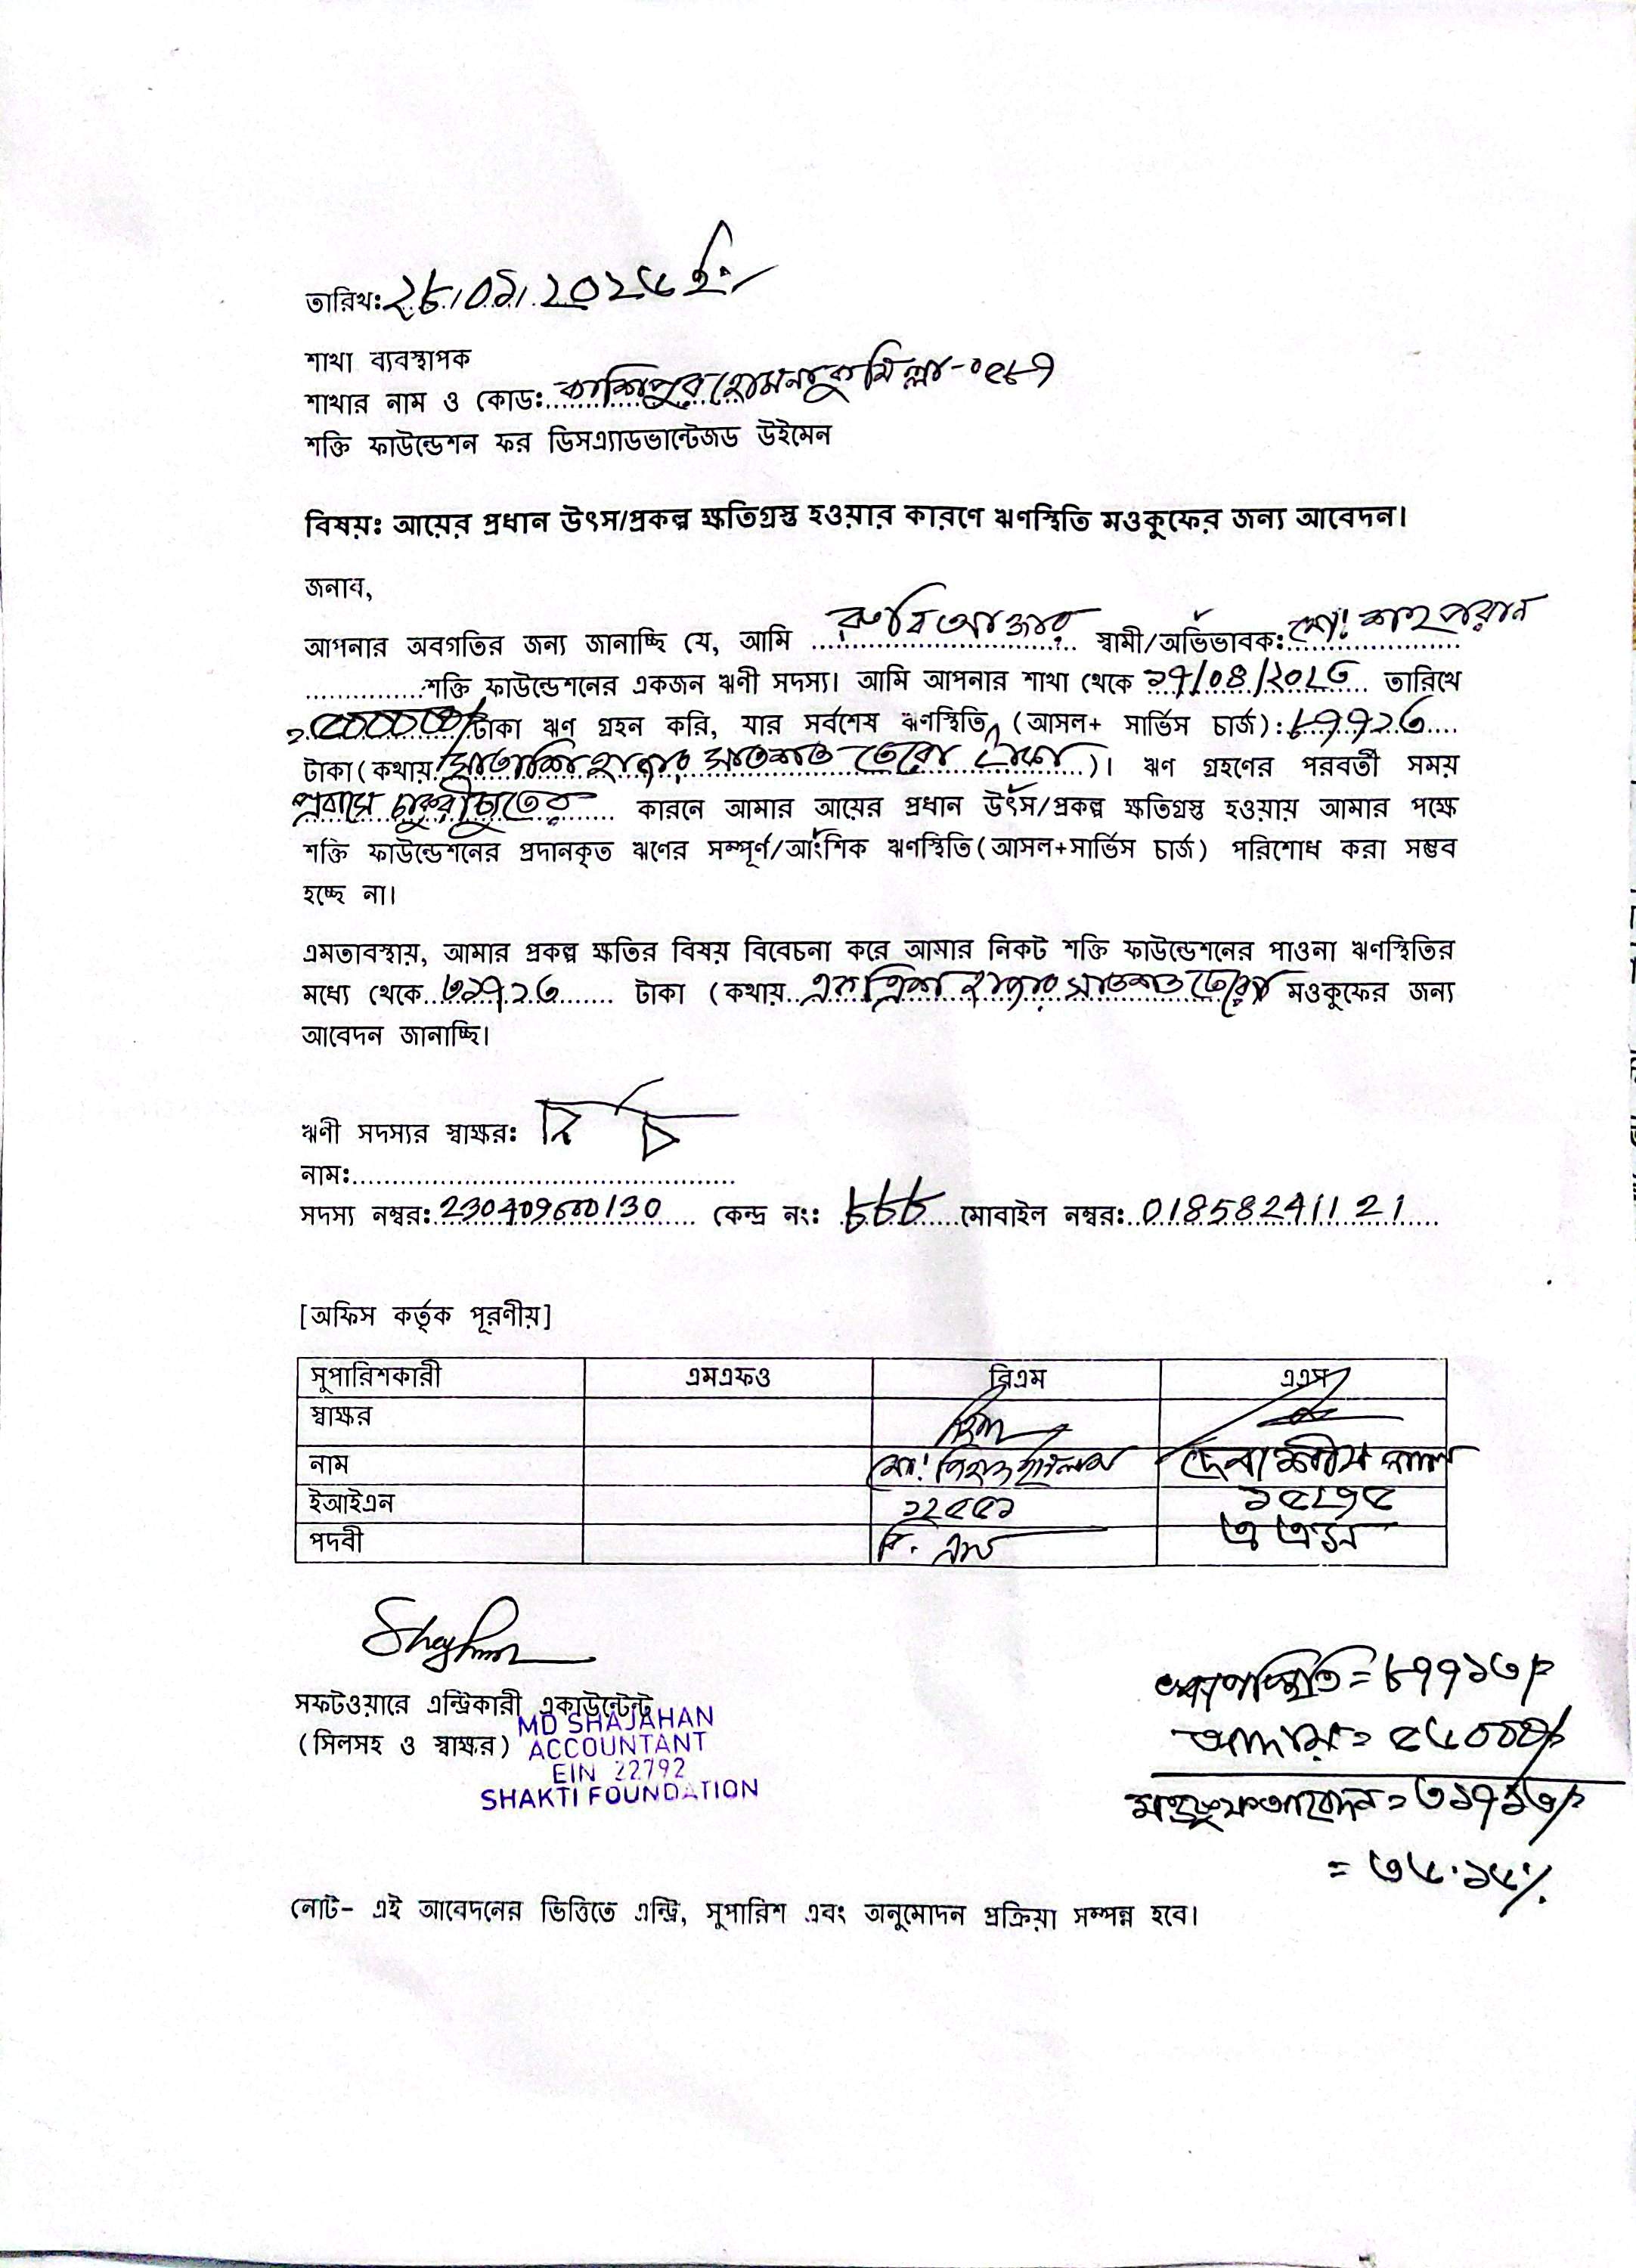 তারিখঃ ২৮/০৯/২০২৫ ইং
শাখা ব্যবস্থাপক
শাখার নাম ও কোডঃ কাশিপুর হোমনা কুমিল্লা-০৫৮৭
শক্তি ফাউন্ডেশন ফর ডিসএ্যাডভান্টেজড উইমেন
বিষয়ঃ আয়ের প্রধান উৎস/প্রকল্প ক্ষতিগ্রস্ত হওয়ার কারণে ঋণস্থিতি মওকুফের জন্য আবেদন।
জনাব,
আপনার অবগতির জন্য জানাচ্ছি যে, আমি রুবি আক্তার স্বামী/অভিভাবকঃ মো: শাহ পরান
শক্তি ফাউন্ডেশনের একজন ঋণী সদস্য। আমি আপনার শাখা থেকে ১৭/০৪/২০২৩ তারিখে
টাকা ঋণ গ্রহন করি, যার সর্বশেষ ঋণস্থিতি (আসল+ সার্ভিস চার্জ): ৮৭৭১৩
টাকা (কথায় সাতাশি হাজার সাতশত তেরো টাকা)। ঋণ গ্রহণের পরবর্তী সময়
প্রবাসে চাকুরীচ্যুতের কারনে আমার আয়ের প্রধান উৎস/প্রকল্প ক্ষতিগ্রস্ত হওয়ায় আমার পক্ষে
শক্তি ফাউন্ডেশনের প্রদানকৃত ঋণের সম্পূর্ণ/আংশিক ঋণস্থিতি(আসল+সার্ভিস চার্জ) পরিশোধ করা সম্ভব
হচ্ছে না।
এমতাবস্থায়, আমার প্রকল্প ক্ষতির বিষয় বিবেচনা করে আমার নিকট শক্তি ফাউন্ডেশনের পাওনা ঋণস্থিতির
মধ্যে থেকে ৩১৭১৩ টাকা (কথায় একত্রিশ হাজার সাতশত তেরো মওকুফের জন্য
আবেদন জানাচ্ছি।
ঋণী সদস্যর স্বাক্ষরঃ
নামঃ
সদস্য নম্বরঃ 230409600130 কেন্দ্র নংঃ ৮৮৮ মোবাইল নম্বরঃ 01858241121
[অফিস কর্তৃক পূরণীয়]
সুপারিশকারী এমএফও বিএম এএস
স্বাক্ষর
নাম মো: দেবাশীষ পাল
ইআইএন ১২৫৫১ ১৫২৭৫
পদবী বি. এম এ এস
সফটওয়ারে এন্ট্রিকারী একাউন্টেন্ট
(সিলসহ ও স্বাক্ষর)
MD SHAJAHAN
ACCOUNTANT
EIN 22792
SHAKTI FOUNDATION
ঋণস্থিতি = ৮৭৭১৩/=
আদায় = ৫৬০০০/=
মওকুফ আবেদন = ৩১৭১৩/=
= ৩৬.১৫%
নোট- এই আবেদনের ভিত্তিতে এন্ট্রি, সুপারিশ এবং অনুমোদন প্রক্রিয়া সম্পন্ন হবে।